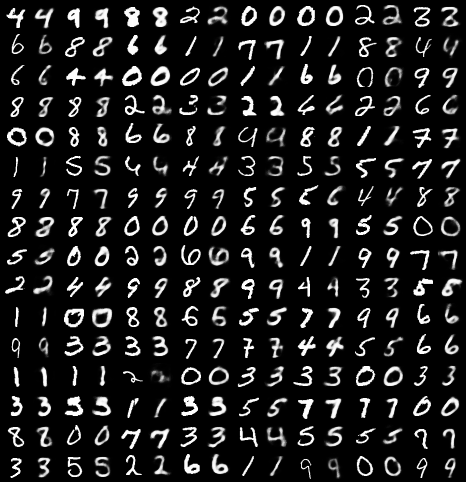 4 4 9 9 8 8 2 2 0 0 0 0 2 2 3 3
6 6 8 8 6 6 1 1 7 7 1 1 8 8 4 4
6 6 4 4 0 0 0 0 1 1 6 6 0 0 9 9
8 8 8 8 2 2 3 3 2 2 6 6 2 2 6 6
0 0 8 8 6 6 8 8 4 4 8 8 1 1 7 7
1 1 5 5 4 4 4 4 3 3 5 5 5 5 7 7
9 9 7 7 9 9 9 9 5 5 6 4 4 8 8
8 8 8 8 0 0 0 0 6 6 9 9 5 5 0 0
5 5 0 0 2 2 6 6 9 9 1 1 9 9 7 7
2 2 4 4 9 9 8 8 9 9 4 4 3 3 5 5
1 1 0 0 8 8 6 6 5 5 7 7 9 9 6 6
9 9 3 3 3 3 7 7 7 7 4 4 5 5 6 6
1 1 1 1 2 0 0 3 3 3 3 0 0 3 3
3 3 1 1 3 3 5 5 7 7 7 7 0 0
8 8 0 0 7 7 3 3 4 4 5 5 5 5 9 9
3 3 5 5 2 2 6 6 1 1 9 9 0 0 9 9